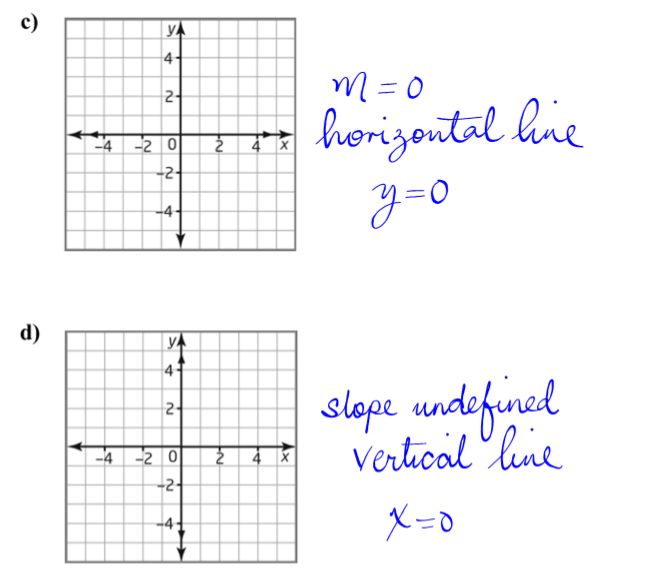 c)
y
4
2
-4 -2 0 2 4 x
-2
-4
m = 0
horizontal line
y=0
d)
y
4
2
-4 -2 0 2 4 x
-2
-4
slope undefined
vertical line
x=0